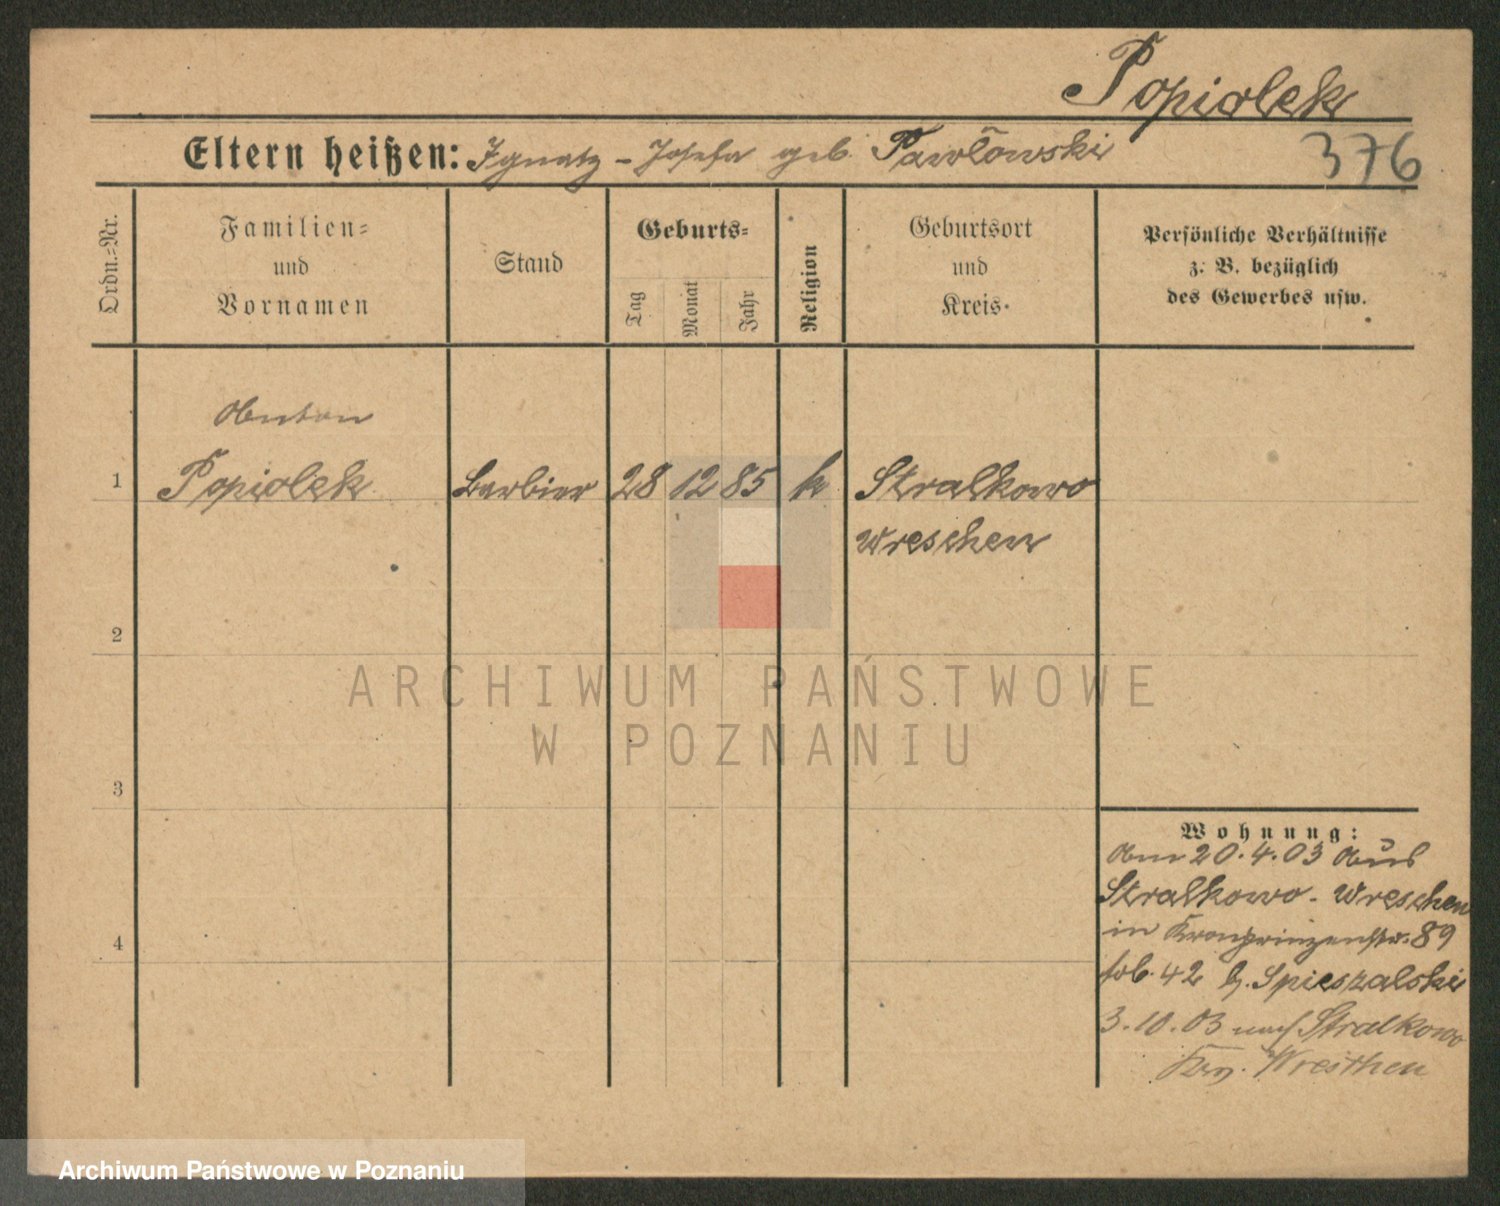 Popiolek
Eltern heißen: Ignatz - Josefa geb. Pawlowski
376
Ordn.-Nr.
Familien-
und
Vornamen
Stand
Geburts-
Tag
Monat
Jahr
Religion
Geburtsort
und
Kreis.
Persönliche Verhältnisse
z. B. bezüglich
des Gewerbes usw.
Anton
1 Popiolek Barbier 28 12 85 k Stralkowo
Wreschen
2
3
4
Wohnung:
Am 20.4.03 Aus
Stralkowo - Wreschen
in Kronprinzenstr. 89
42 b. Spieszalski
3.10.03 nach Stralkowo
Wreschen
ARCHIWUM PAŃSTWOWE
W POZNANIU
Archiwum Państwowe w Poznaniu